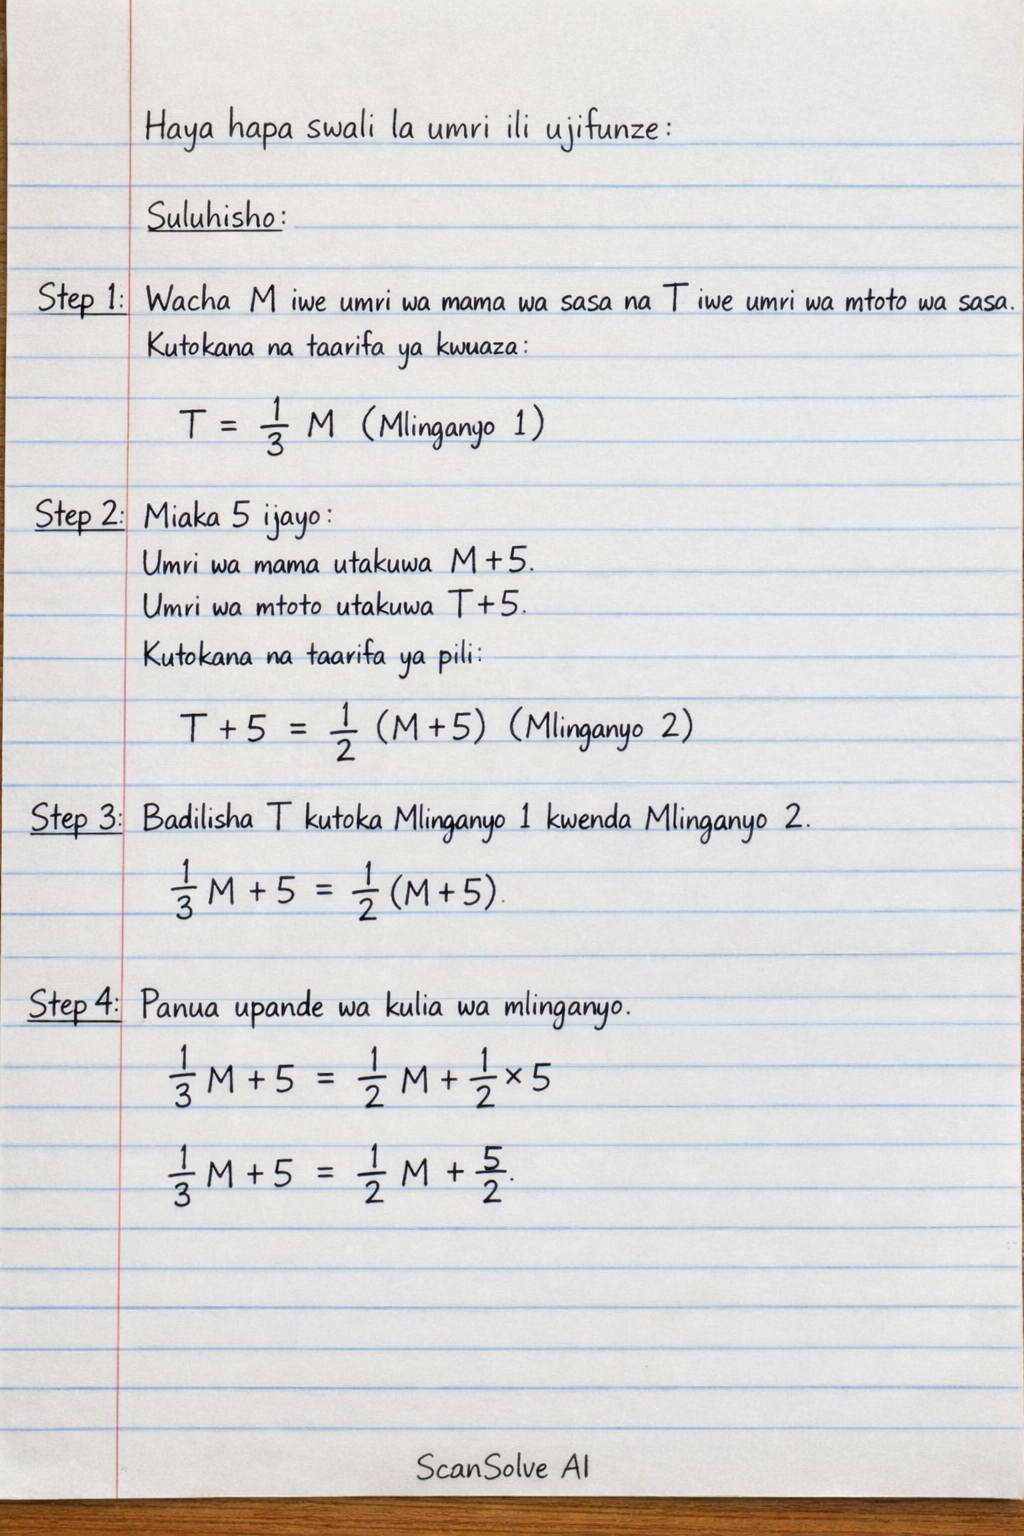 Haya hapa swali la umri ili ujifunze:
Suluhisho:
Step 1: Wacha M iwe umri wa mama wa sasa na T iwe umri wa mtoto wa sasa.
Kutokana na taarifa ya kwuaza:
T = 1/3 M (Mlinganyo 1)
Step 2: Miaka 5 ijayo:
Umri wa mama utakuwa M+5.
Umri wa mtoto utakuwa T+5.
Kutokana na taarifa ya pili:
T + 5 = 1/2 (M+5) (Mlinganyo 2)
Step 3: Badilisha T kutoka Mlinganyo 1 kwenda Mlinganyo 2.
1/3 M + 5 = 1/2 (M+5).
Step 4: Panua upande wa kulia wa mlinganyo.
1/3 M + 5 = 1/2 M + 1/2 × 5
1/3 M + 5 = 1/2 M + 5/2.
ScanSolve AI